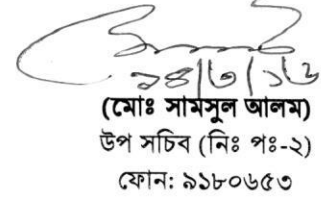 ১৪/৩/১৬
(মোঃ সামসুল আলম)
উপ সচিব (নিঃ পঃ-২)
ফোন: ৯১৮০৬৫৩